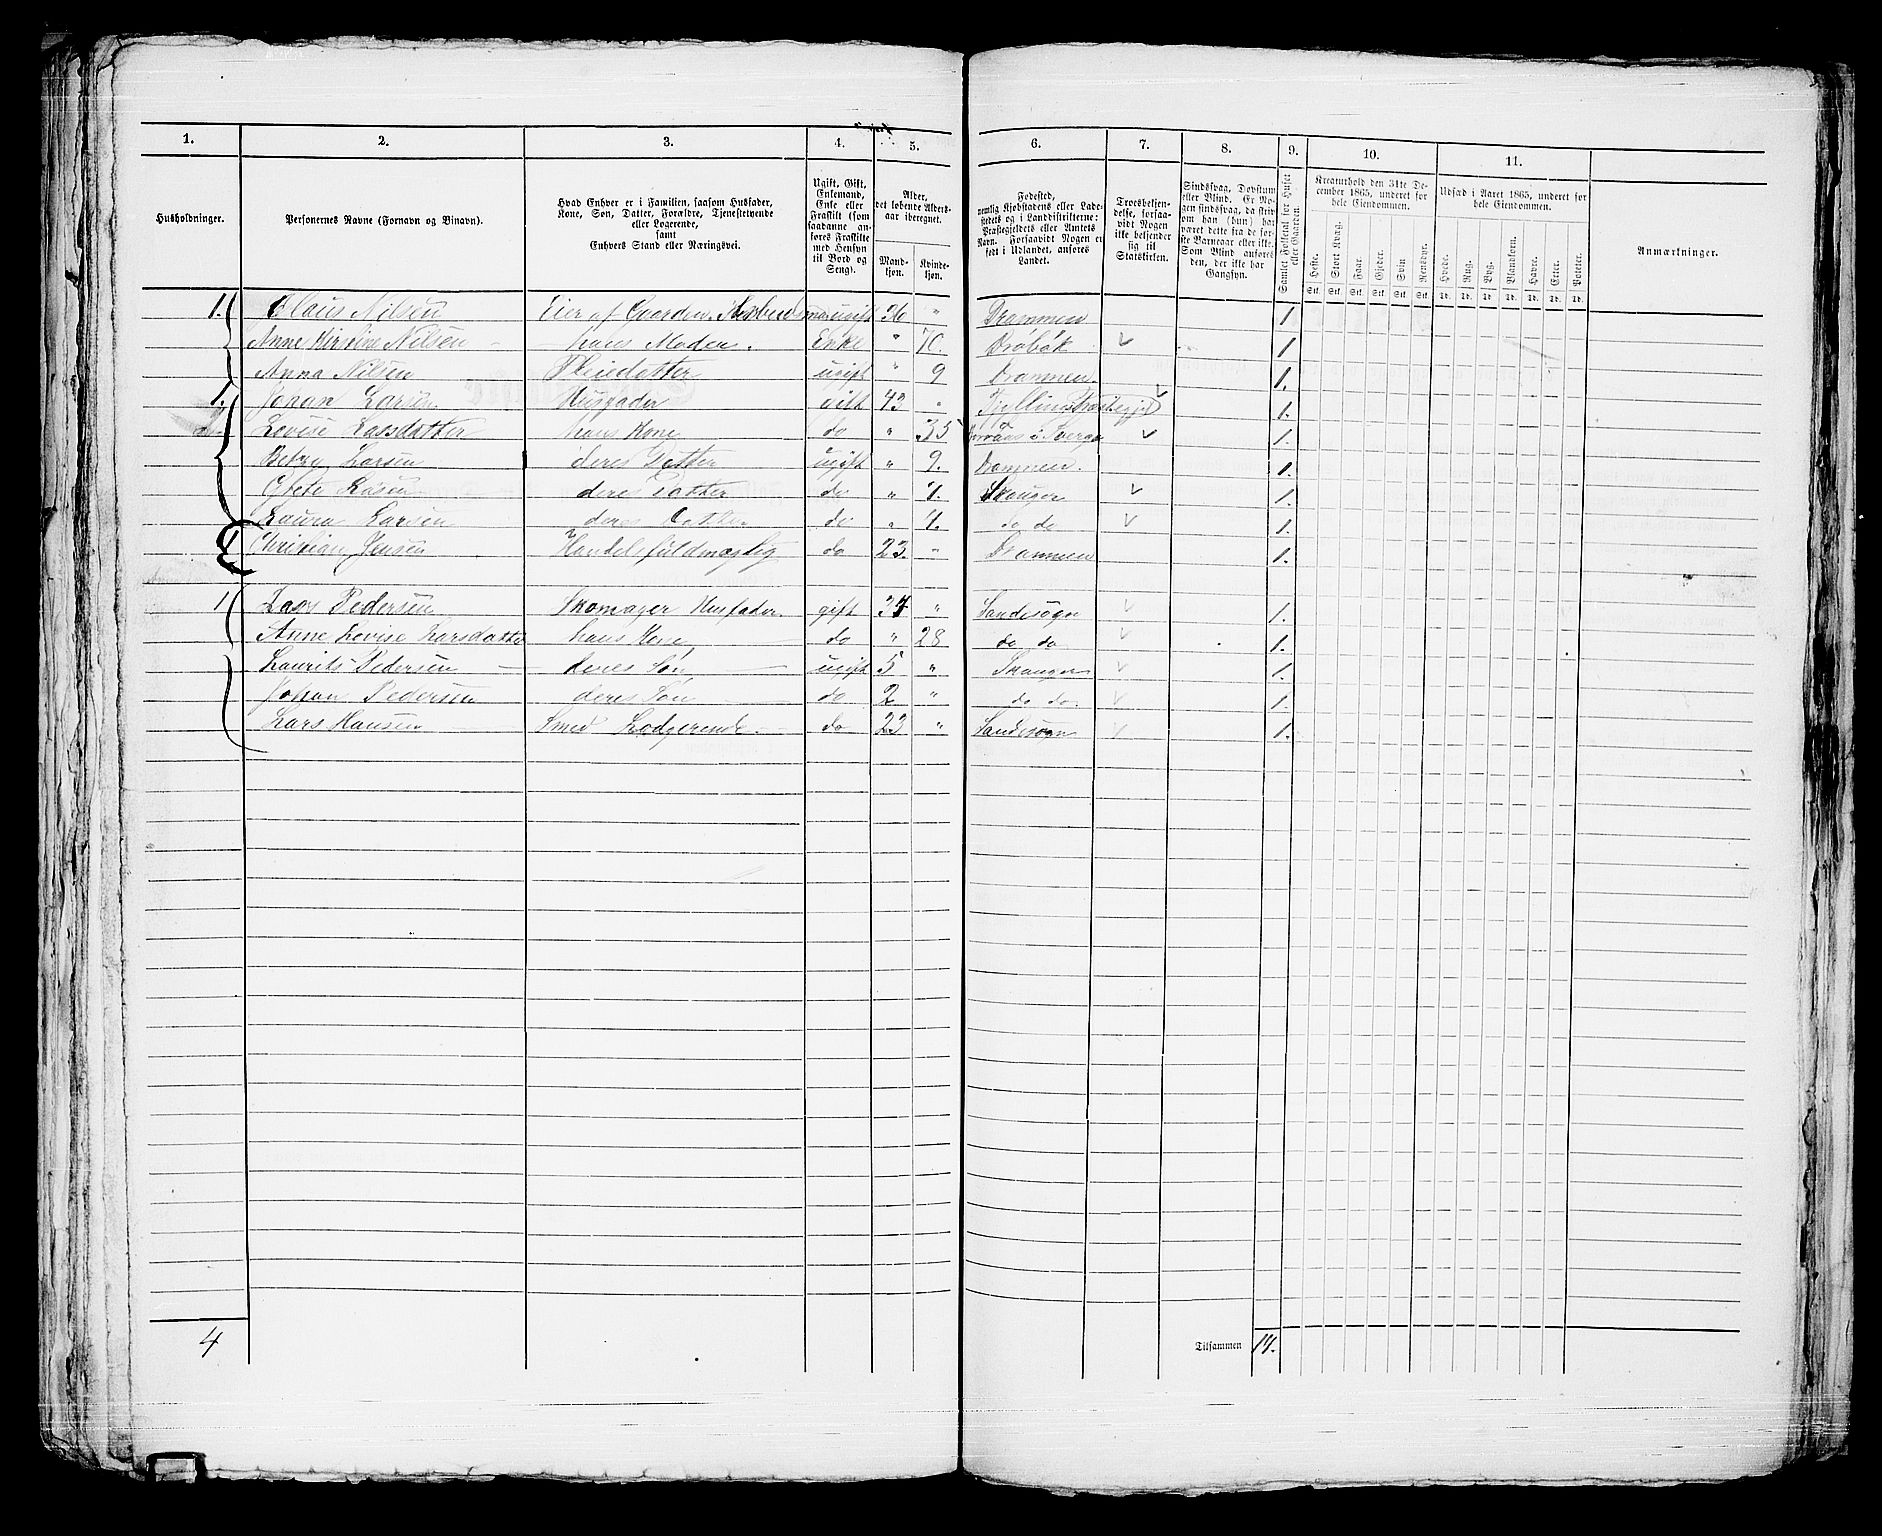 1. 2. 3. 4. 5. 6. 7. 8. 9. 10. 11.
Husholdninger.
Personernes Navne (Fornavn og Binavn).
Hvad Enhver er i Familien, saasom Husfader,
Kone, Søn, Datter, Forældre, Tjenestetyende
eller Logerende,
samt
Enhvers Stand eller Næringsvei.
Ugift, Gift,
Enkemand,
Enke eller
Fraskilt (som
saadanne an-
føres Fraskilte
med Hensyn
til Bord og
Seng).
Alder,
det løbende Alders-
aar iberegnet.
Mand-
kjøn.
Kvinde-
kjøn.
Fødested,
nemlig Kjøbstadens eller Lade-
stedets og i Landdistrikterne:
Præstegjeldets eller Amtets
Navn. Forsaavidt Nogen er
født i Udlandet, anføres
Landet.
Troesbekjen-
delse, forsaa-
vidt Nogen
ikke bekjender
sig til
Statskirken.
Sindssvag, Døvstum
eller Blind. Er No-
gen sindssvag, da skriv
om han (hun) har
været dette fra de før-
ste Barneaar eller ikke.
Som Blind anføres
den, der ikke har
Gangsyn.
Samlet Folketal for Huset
eller Gaarden.
Kreaturhold den 31te De-
cember 1865, underet for
hele Eiendommen.
Heste. Stort Kvæg. Faar. Gjeder. Svin. Rensdyr.
Stk. Stk. Stk. Stk. Stk. Stk.
Udsæd i Aaret 1865, underet for
hele Eiendommen.
Hvede. Rug. Byg. Blandkorn. Havre. Erter. Poteter.
Td. Td. Td. Td. Td. Td. Td.
Anmærkninger.
1. Olaus Nilsen Eier af Gaarden ugift 26 " Drammen 1
Anne Kirstine Nilsen hans Moder. Enke " 70. Drøbak 1
Anna Nilsen Pleiedatter ugift " 9 Drammen. 1.
1. Johan Larsen Husfader gift 43 " 1.
Lovise Larsdatter hans Kone do " 35 i Sverge 1.
Betzy Larsen deres Datter ugift " 9. Drammen. 1.
Larsen deres Datter do " Skouger 1.
Laura Larsen deres Datter do " do do 1.
1 Christian Jensen Handelsfuldmægtig do 23. " Drammen 1.
1 Lars Pedersen Skomager Husfader. gift 34 " Sandesogn 1.
Anne Lovise Larsdatter hans Kone do " 28 do do 1.
Laurits Pedersen deres Søn ugift 5 " Skouger 1.
Johan Pedersen deres Søn do 2 " do do 1.
Lars Hansen Smed Lodgerende do 23 " Sandesogn 1.
4 Tilsammen 14.